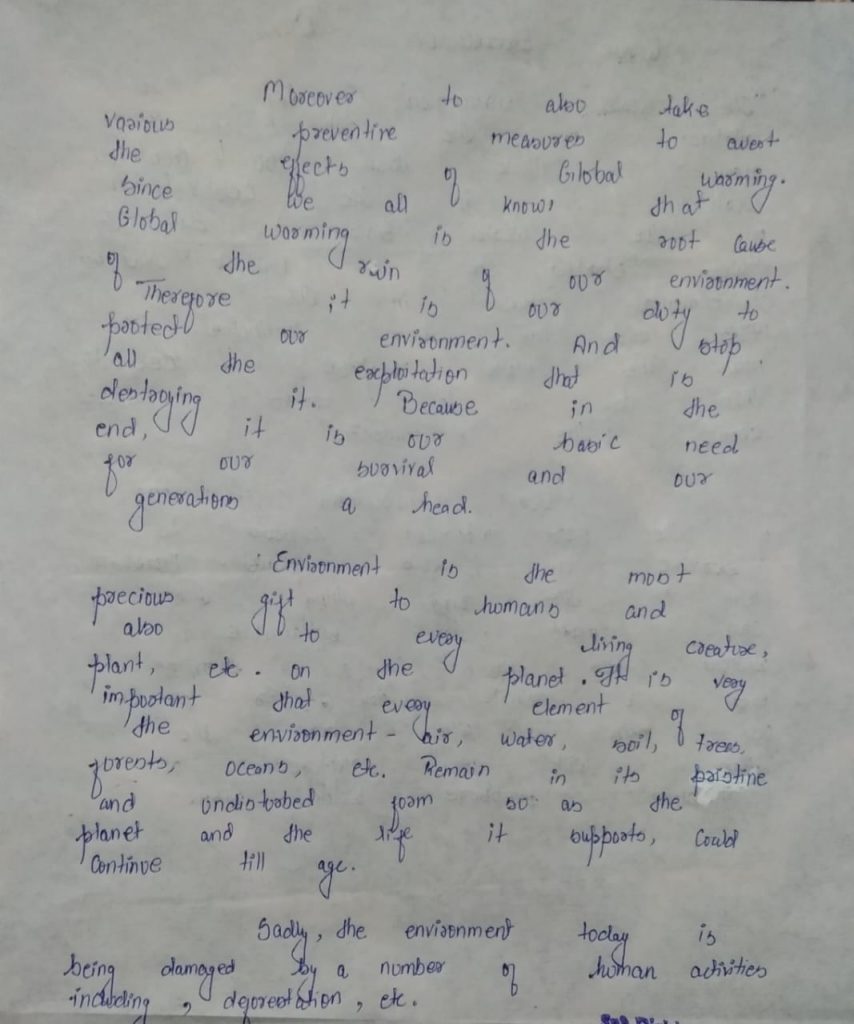 Moreover to also take
various preventive measures to avert
the effects of Global warming.
Since We all know, that
Global warming is the root Cause
of the ruin of our environment.
Therefore it is our duty to
protect our environment. And stop
all the exploitation that is
destroying it. Because in the
end, it is our basic need
for our survival and our
generations a head.
Environment is the most
precious gift to humans and
also to every living creature,
plant, etc. on the planet. It is very
important that every element of
the environment - air, water, soil, trees,
forests, oceans, etc. Remain in its pristine
and undistrobed form so as the
planet and the life it supports, Could
Continue till age.
Sadly, the environment today is
being damaged by a number of human activities
including , deforestation, etc.